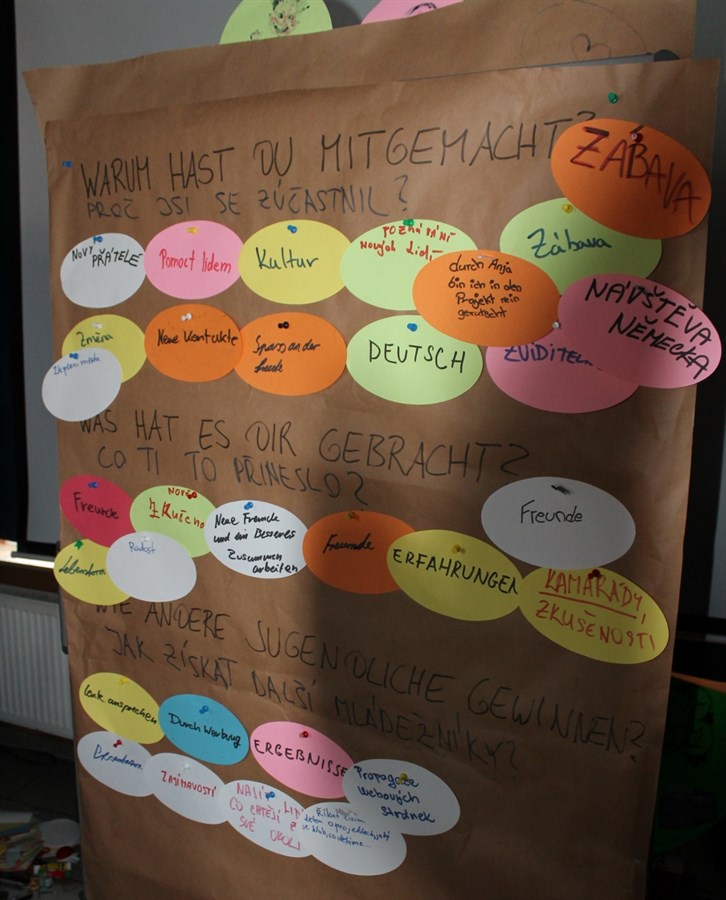 WARUM HAST DU MITGEMACHT?
PROČ JSI SE ZÚČASTNIL?
ZÁBAVA
NOVÝ
PŘÁTELÉ
Pomoct lidem
Kultur
POZNÁVÁNÍ
Nových lidí
Zábava
durch Anja
bin ich in das
Projekt rein
gerutscht
NÁVŠTĚVA
NĚMECKA
Změna
Neue Kontakte
Spass an der
DEUTSCH
WAS HAT ES DIR GEBRACHT?
CO TI TO PŘINESLO?
Freunde
NOVÉ
Radost
Neue Freunde
und ein Besseres
Zusammen
arbeiten
Freunde
ERFAHRUNGEN
Freunde
KAMARÁDY,
ZKUŠENOSTI
WIE ANDERE JUGENDLICHE GEWINNEN?
JAK ZÍSKAT DALŠÍ MLÁDEŽNÍKY?
Leute ansprechen
Durch Werbung
ERGEBNISSE
Propagace
webových
stránek
ZAJÍMAVOSTI
NAJÍT LIDI
CO CHTĚJÍ Z
SVÉ OKOLÍ